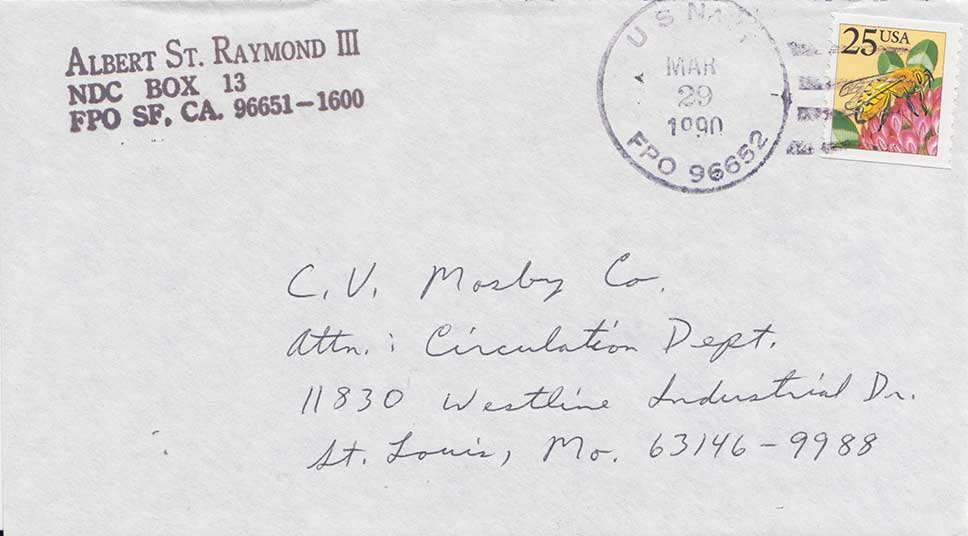 ALBERT ST. RAYMOND III
NDC BOX 13
FPO SF, CA. 96651-1600
U S NAVY
MAR
29
1990
FPO 96652
25 USA
C.V. Mosby Co.
Attn.: Circulation Dept.
11830 Westline Industrial Dr.
St. Louis, Mo. 63146-9988